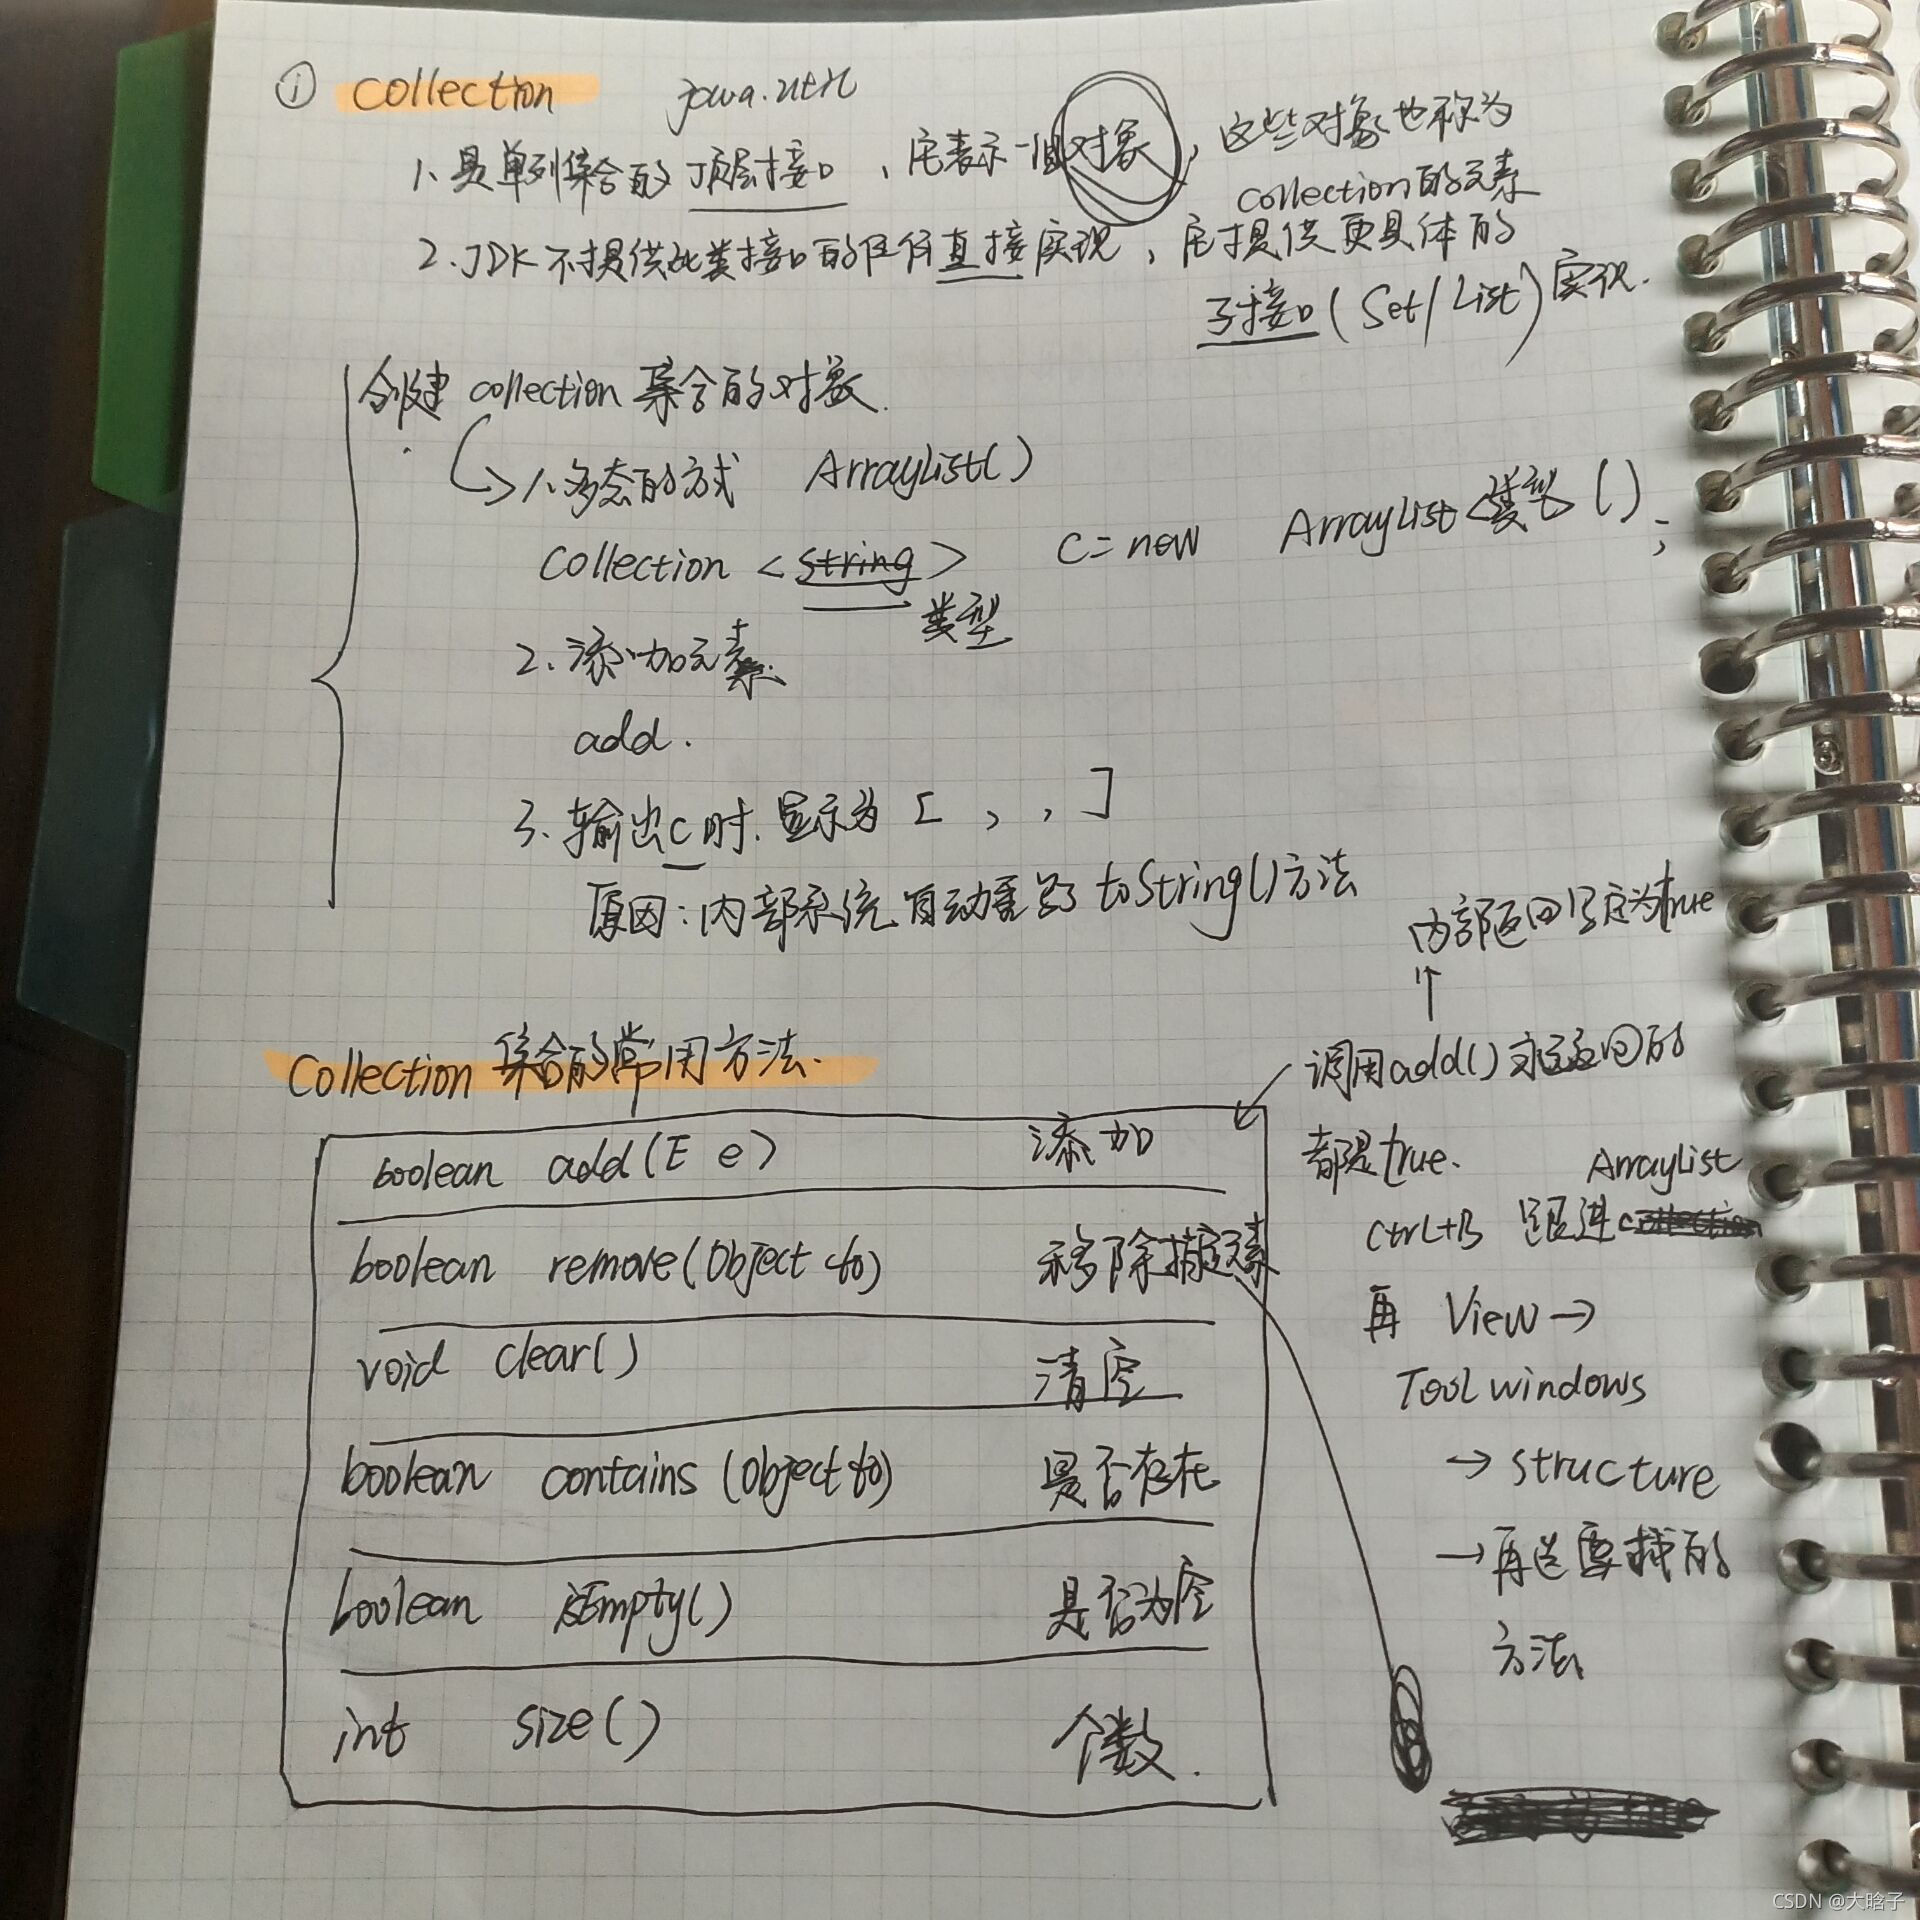 ① Collection java.util
1、是单列集合的顶层接口，它表示一组对象，这些对象也称为
Collection的元素
2.JDK不提供此类接口的任何直接实现，它提供更具体的
子接口(Set/List)实现.
创建 collection 集合的对象.
1.多态的方式 ArrayList()
Collection <string> C=new ArrayList<类型>();
类型
2.添加元素.
add.
3.输出c时.显示为 [ , , ]
原因:内部系统自动重写了toString()方法
内部返回写定为true
↑
Collection 集合的常用方法.
调用add()永远返回的
都是true.
ArrayList
Ctrl+B 跟进
再 View→
Tool windows
→structure
→再选要找的
方法
boolean add(E e) 添加
boolean remove(Object o) 移除指定元素
void clear() 清空
boolean contains(Object o) 是否存在
boolean isEmpty() 是否为空
int size() 个数.
CSDN @大晗子